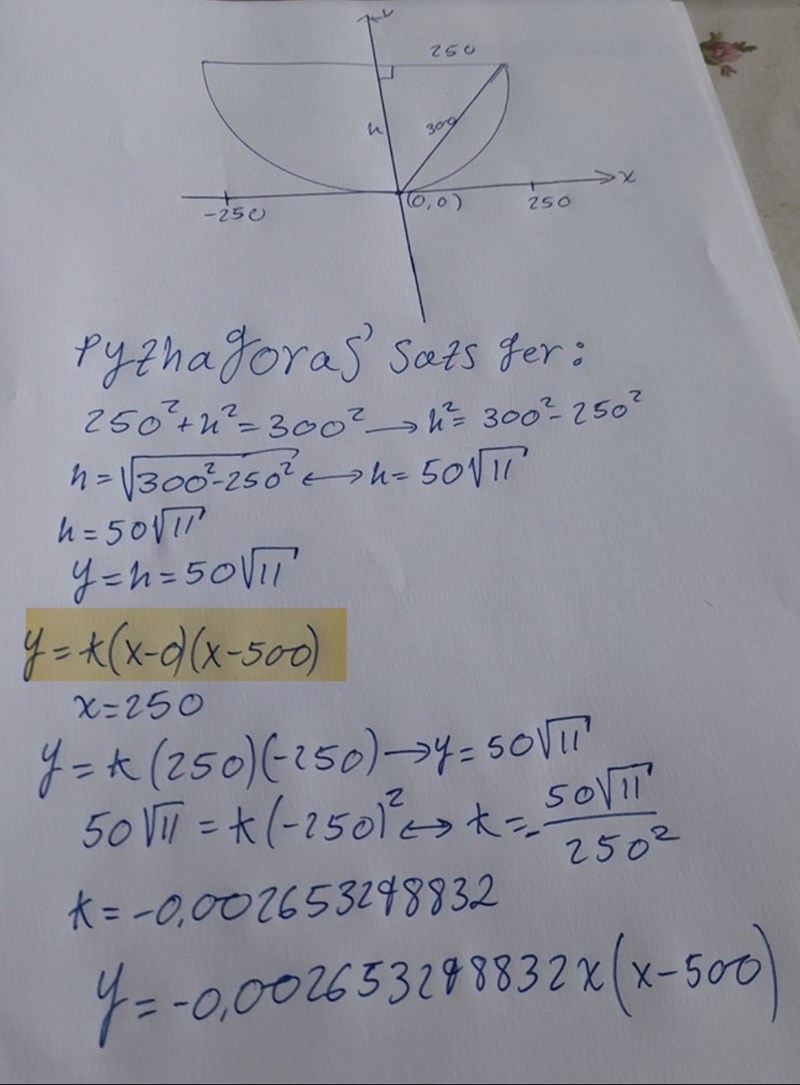 y
250
h
300
x
-250
(0,0)
250
Pythagoras' sats ger:
250²+h²=300² → h²=300²-250²
h=√300²-250² ↔ h=50√11
h=50√11
y=h=50√11
y=k(x-0)(x-500)
x=250
y=k(250)(-250) → y=50√11
50√11=k(-250)² ↔ k=-50√11/250²
k=-0,002653298832
y=-0,002653298832x(x-500)